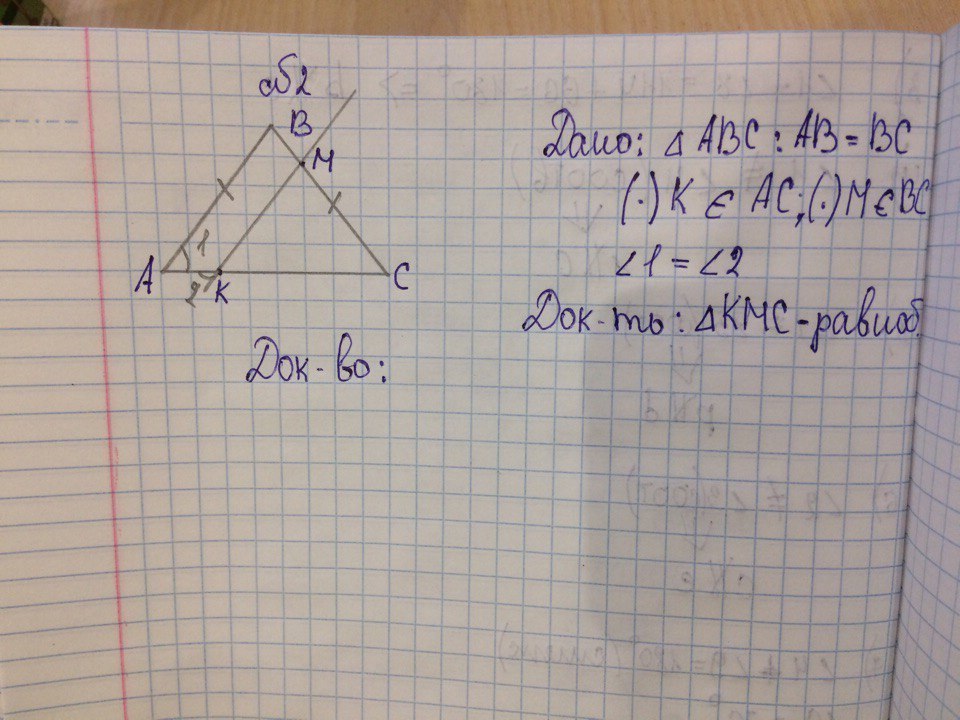 сб2
B
M
1
A
2
K
C
Дано: △ ABC : AB = BC
(·) K ∈ AC; (·) M ∈ BC
∠1 = ∠2
Док-ть: △KMC - равноб.
Док-во: